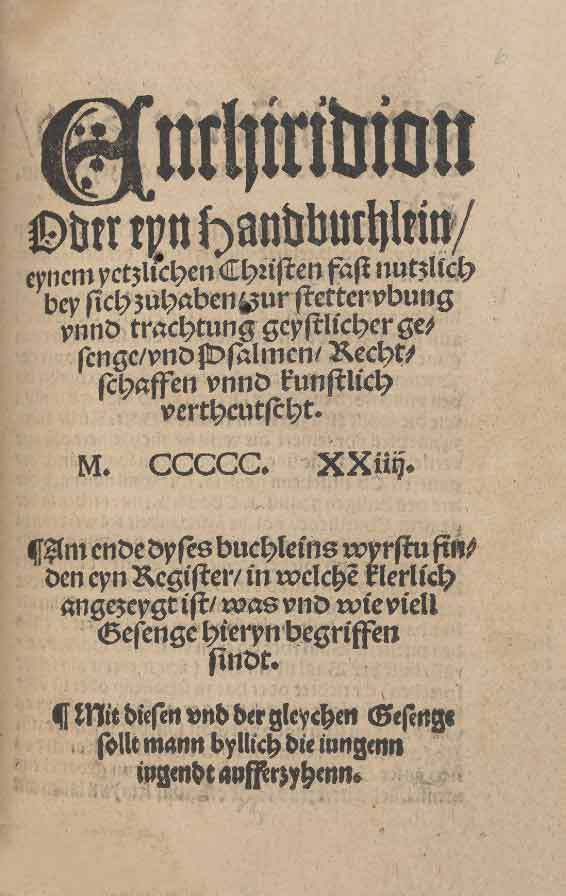 Enchiridion
Oder eyn Handbuchlein/
eynem yetzlichen Christen fast nutzlich
bey sich zuhaben/ zur stetter vbung
vnnd trachtung geystlicher ge-
senge/ vnd Psalmen/ Recht-
schaffen vnnd kunstlich
vertheutscht.
M. CCCCC. XXiiij.
¶ Am ende dyses buchleins wyrstu fin-
den eyn Register/ in welchē klerlich
angezeygt ist/ was vnd wie viell
Gesenge hieryn begriffen
sindt.
¶ Mit diesen vnd der gleychen Gesenge
sollt mann byllich die iungenn
iugendt aufferzyhenn.